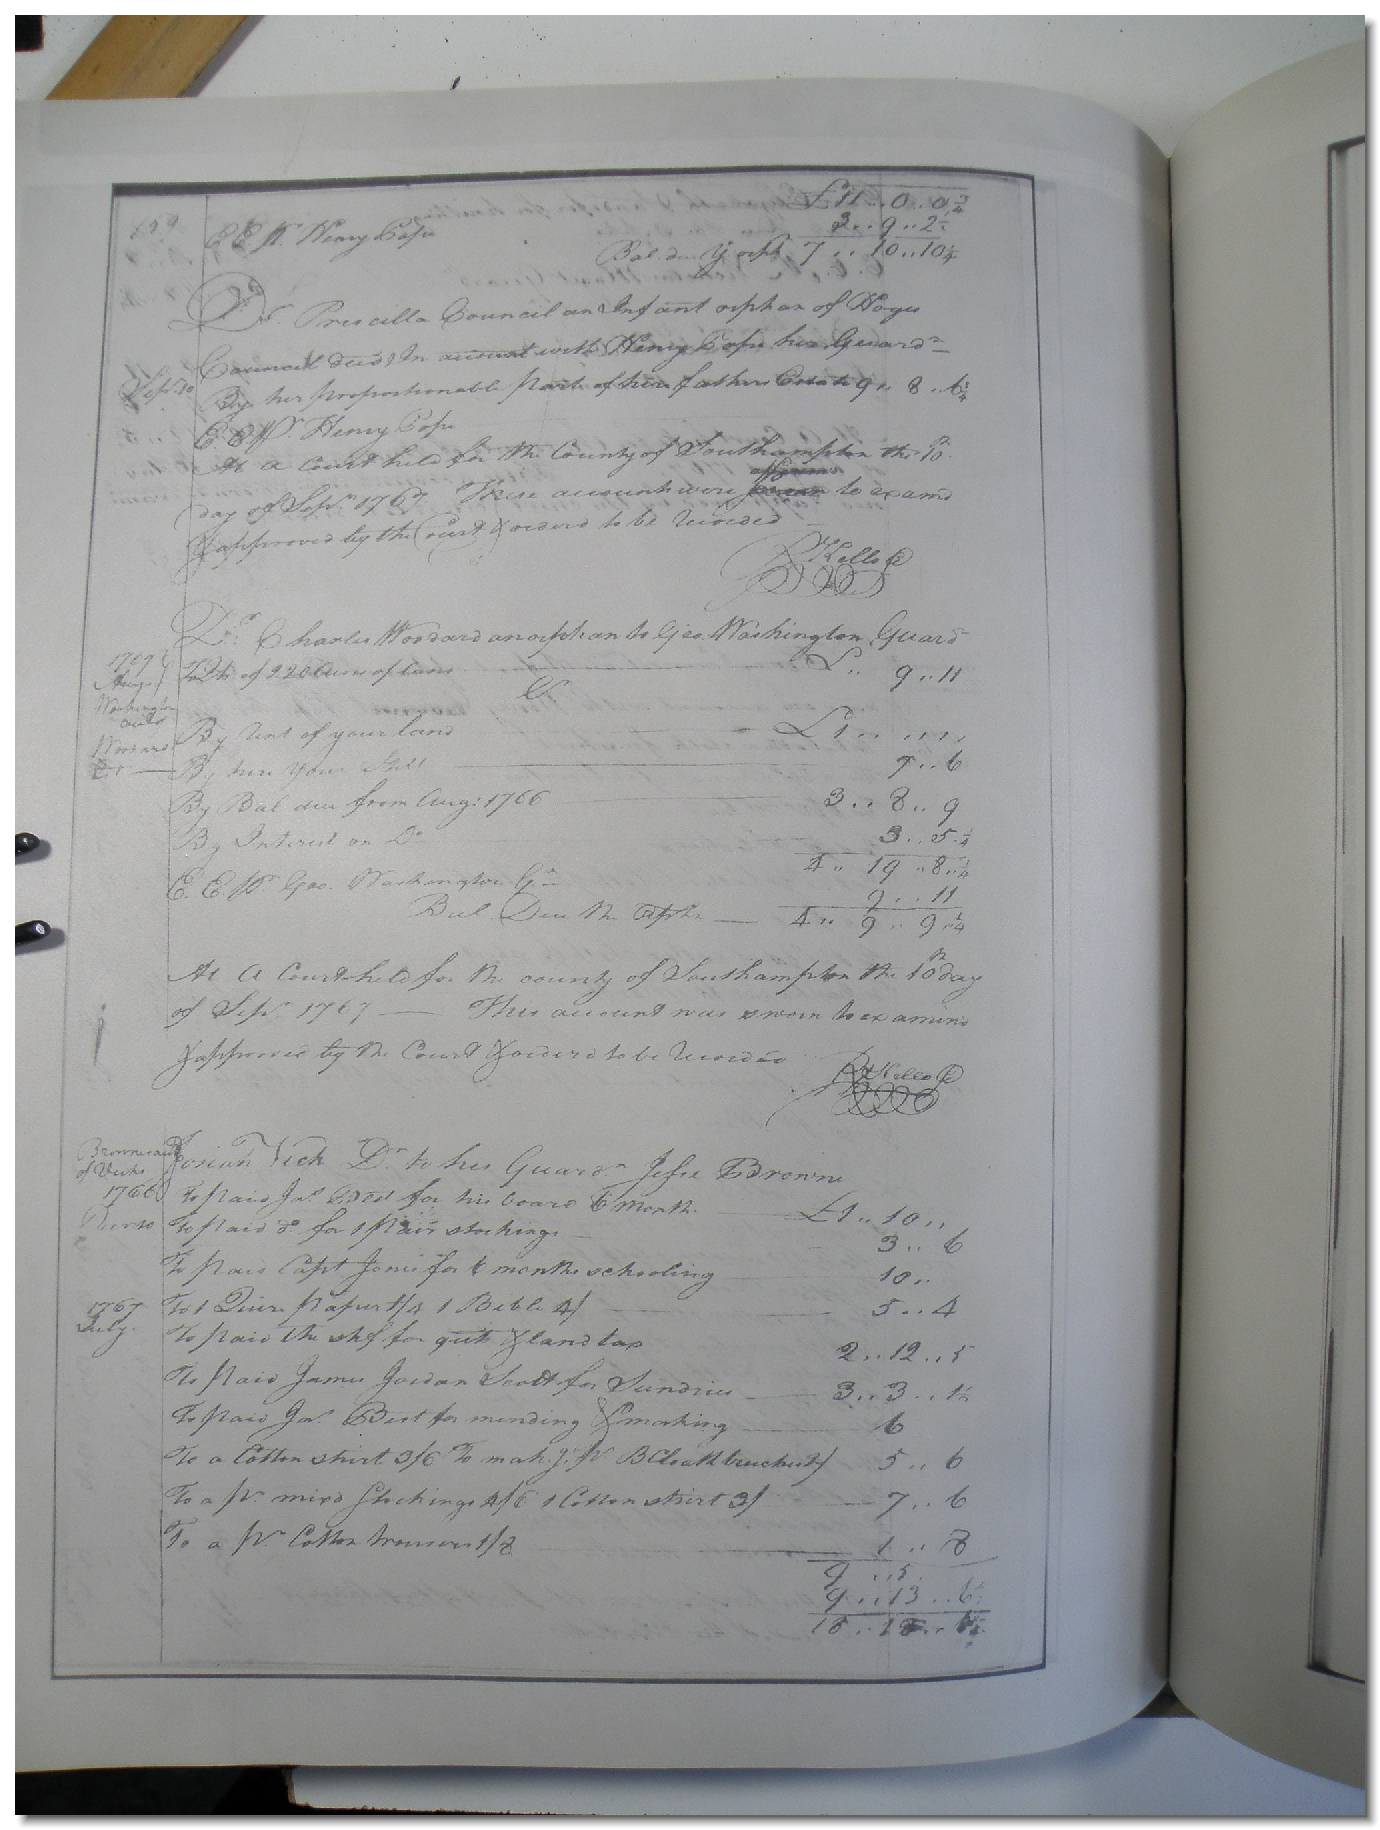 £11..0..0 3/4
3..9..2 1/2
E E Pr. Henry Pope
Bal. due ye orph. 7..10..10 1/4
Dr. Priscilla Council an Infant orphan of Hoges
Council decd. In account with Henry Pope her Guardn.
Sepr. 10 By her proportionable part of her fathers Estate 9..8..6 1/4
E. E Pr. Henry Pope
At a Court held for the County of Southampton the 10th.
day of Sepr. 1767 These accounts were sworn to examd.
& approved by the Court & orderd to be recorded
R Kello C
Dr. Charles Woodard an orphan to Geo. Washington Guard
1767 Augt. To Qts. of 220 Acres of land £.. 9..11
Cr
Washington
Woodard
By rent of your land £1..
By hire your Still 7..6
By Bal due from Aug: 1766 3..8..9
By Interest on Do. 3..5 1/4
4..19..8 1/4
E. E. Pr. Geo. Washington Gn.
9..11
Bal. Due the Orph. 4..9..9 1/4
At a Court held for the county of Southampton the 10th day
of Sepr. 1767 — This account was sworn to examind
& approved by the Court & orderd to be recorded
R Kello C
Josiah Vick Dr. to his Guardn. Jesse Browne
of Vicks
1766 To paid Jas. Best for his board 6 months £1..10..
To paid Do. for 1 pair stockings 3..6
To paid Capt Jones for 6 months schooling 10..
1767 To 1 Quire paper 1/4 1 Bible 4/ 5..4
July. To paid the shf for quit & land tax 2..12..5
To paid James Jordan Scott for Sundries 3..3..1 1/2
To paid Jas. Best for mending & making 6
To a Cotton shirt 3/6 To makg. pr BCloath breeches 2/ 5..6
To a pr. mixd Stockings 4/6 1 Cotton shirt 3/ 7..6
To a pr Cotton trousers 1/8 1..8
9..5.
9..13..6 1/2